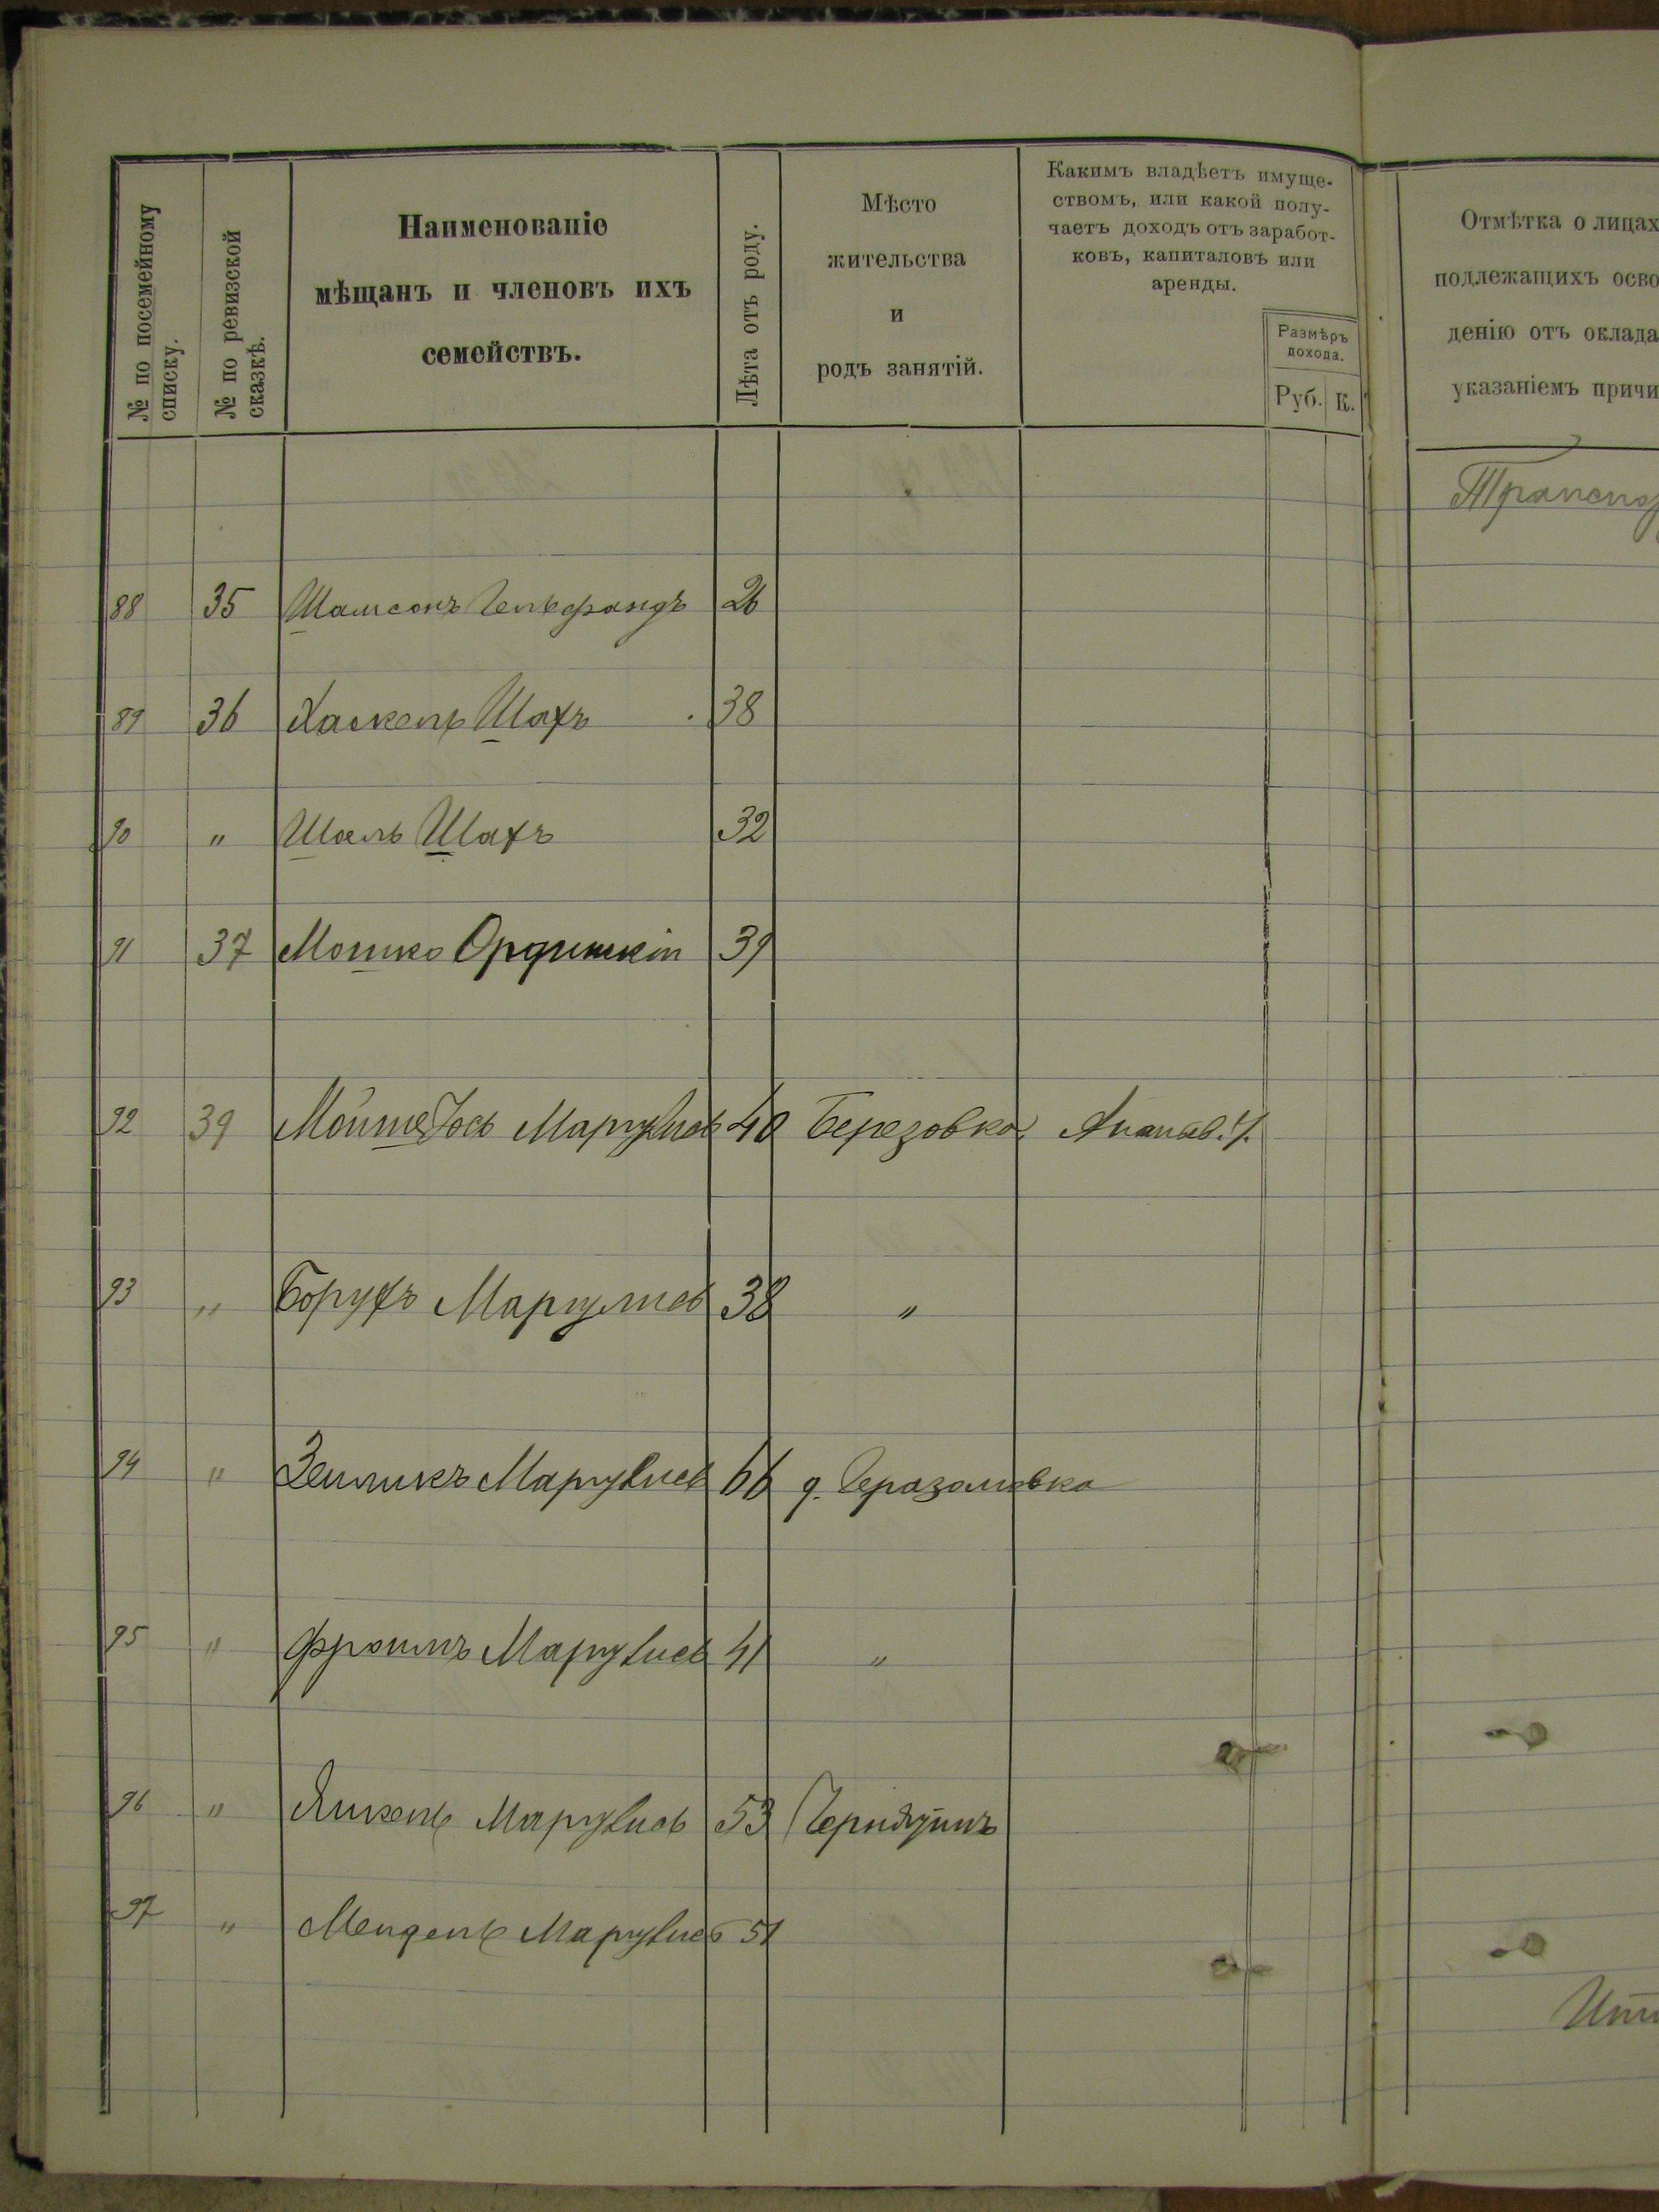 № по посемейному
списку.
№ по ревизской
сказкѣ.
Наименованіе
мѣщанъ и членовъ ихъ
семействъ.
Лѣта отъ роду.
Мѣсто
жительства
и
родъ занятій.
Какимъ владѣетъ имуще-
ствомъ, или какой полу-
чаетъ доходъ отъ заработ-
ковъ, капиталовъ или
аренды.
Размѣръ
дохода.
Руб. К.
Отмѣтка о лицах
подлежащихъ осво
денію отъ оклада
указаніемъ причи
Транспор
88 35 Шамсонъ Гельфандъ 26
89 36 Хаскель Шахъ 38
90 " Шаль Шахъ 32
91 37 Мошко 39
92 39 Мойше Іось Маргулисъ 40 Березовка Ананьев. у.
93 " Борухъ Маргулисъ 38 "
94 " Зейликъ Маргулисъ 66 д. Геразомовка
95 " Фроимъ Маргулисъ 41 "
96 " Янкель Маргулисъ 53
97 " Мендель Маргулисъ 51
Ито